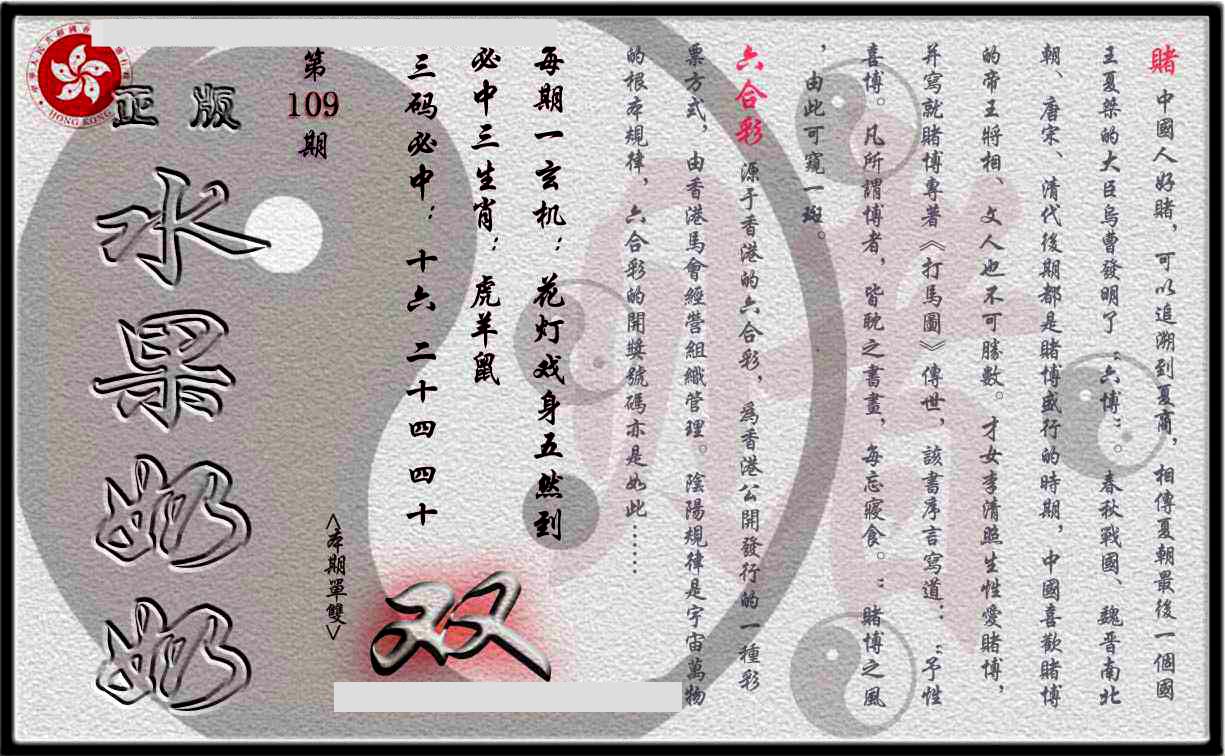 賭 中國人好賭，可以追溯到夏商，相傳夏朝最後一個國
王夏桀的大臣烏曹發明了“六博”。春秋戰國、魏晋南北
朝、唐宋、清代後期都是賭博盛行的時期，中國喜歡賭博
的帝王將相、文人也不可勝數。才女李清照生性愛賭博，
并寫就賭博專著《打馬圖》傳世，該書序言寫道：“予性
喜博。凡所謂博者，皆耽之書畫，每忘寢食。”賭博之風
，由此可窺一斑。
六合彩 源于香港的六合彩，為香港公開發行的一種彩
票方式，由香港馬會經營組織管理。陰陽規律是宇宙萬物
的根本規律，六合彩的開獎號碼亦是如此……
每期一玄机：花灯戏身五然到
必中三生肖：虎羊鼠
三码必中：十六 二十四 四十
第109期
<本期單雙>
双
正版
水果奶奶
HONG KONG